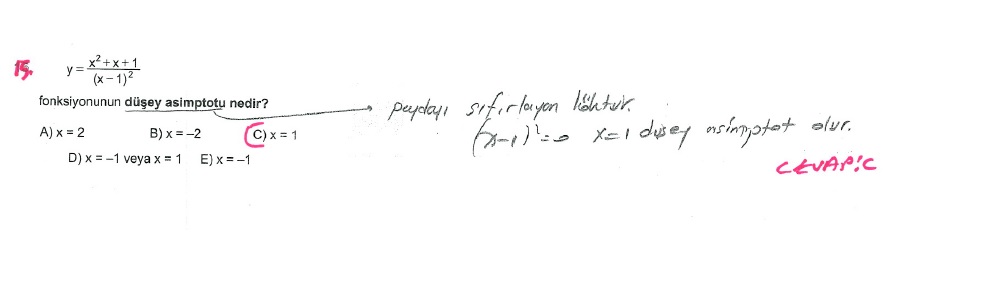 15.
y = x² + x + 1 / (x – 1)²
fonksiyonunun düşey asimptotu nedir?
A) x = 2 B) x = –2 C) x = 1
D) x = –1 veya x = 1 E) x = –1
paydayı sıfırlayan köktür.
(x-1)² = 0 x=1 düşey asimptot olur.
CEVAP:C